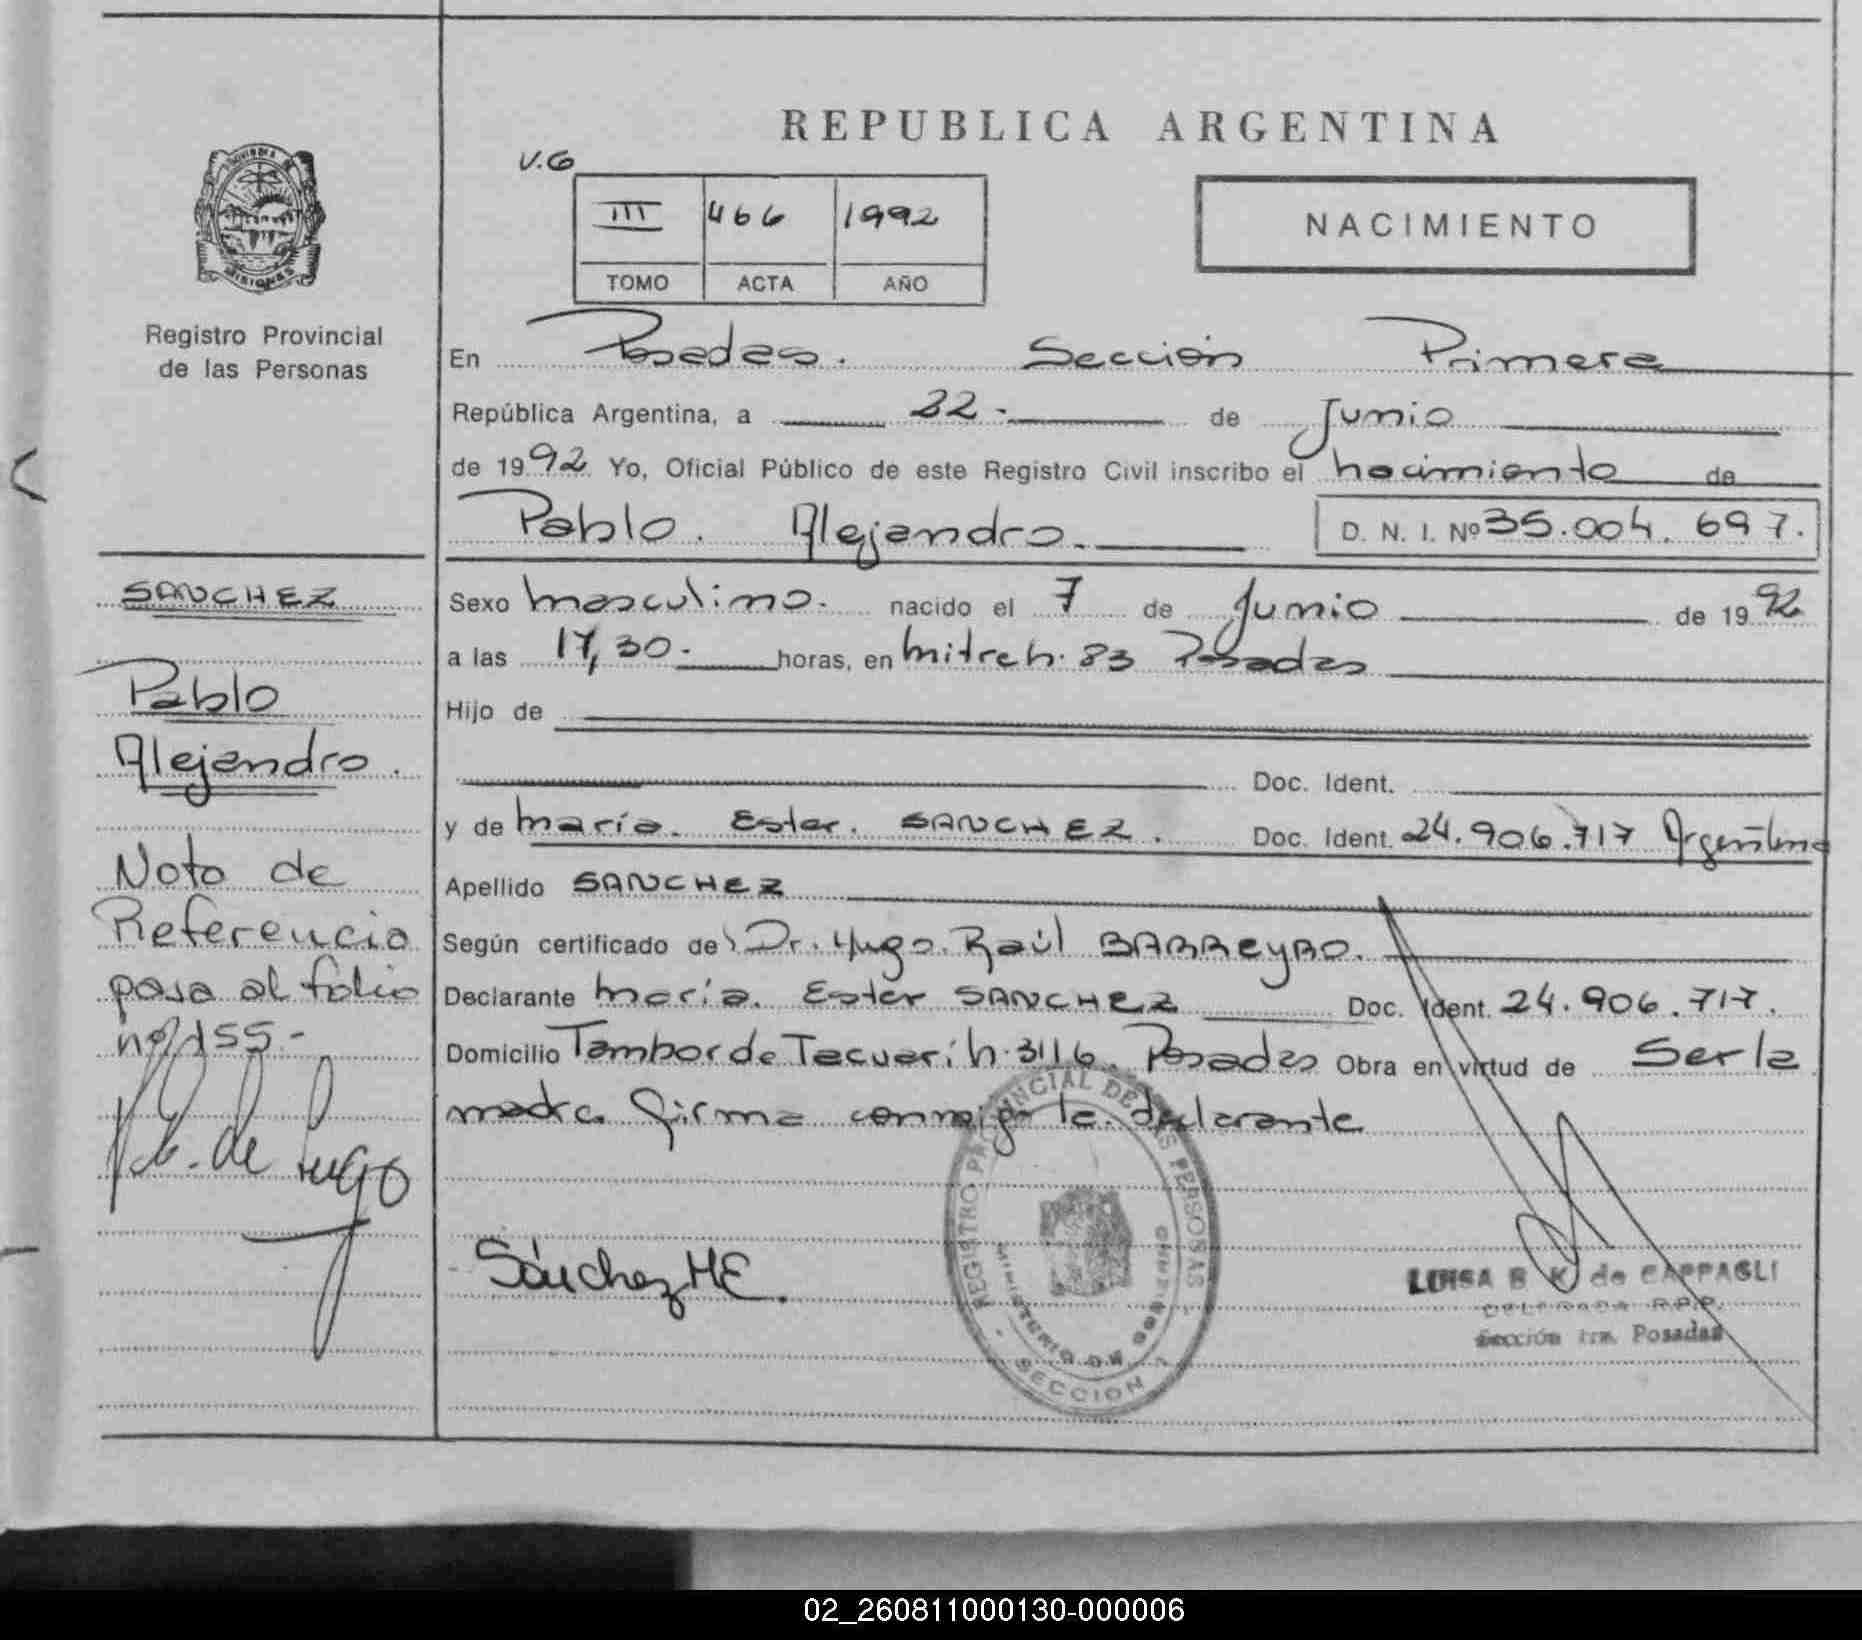 REPUBLICA ARGENTINA
V.G
III 466 1992
TOMO ACTA AÑO
NACIMIENTO
PROVINCIA DE
MISIONES
Registro Provincial
de las Personas
En Posadas. Sección Primera
República Argentina, a 22.- de Junio
de 1992 Yo, Oficial Público de este Registro Civil inscribo el nacimiento de
Pablo. Alejandro. D. N. I. Nº 35.004.697.
Sexo masculino. nacido el 7 de Junio de 1992
a las 17,30.- horas, en Mitre h. 83 Posadas
Hijo de
Doc. Ident.
y de María. Ester. SANCHEZ. Doc. Ident. 24.906.717 Argentina
Apellido SANCHEZ
Según certificado de Dr. Hugo. Raúl BARREYRO.
Declarante María. Ester SANCHEZ Doc. Ident. 24.906.717.
Domicilio Tambor de Tacuarí h. 3116. Posadas Obra en virtud de Ser la
madre firma conmigo la declarante
SANCHEZ
Pablo
Alejandro.
Nota de
Referencia
pasa al folio
nº 155.-
de Lugo
Sánchez ME.
REGISTRO PROVINCIAL DE LAS PERSONAS
MINISTERIO DE GOBIERNO
SECCION 1
LUISA B K de CAPPAGLI
DELEGADA R.P.P.
Sección 1ra. Posadas
02_260811000130-000006